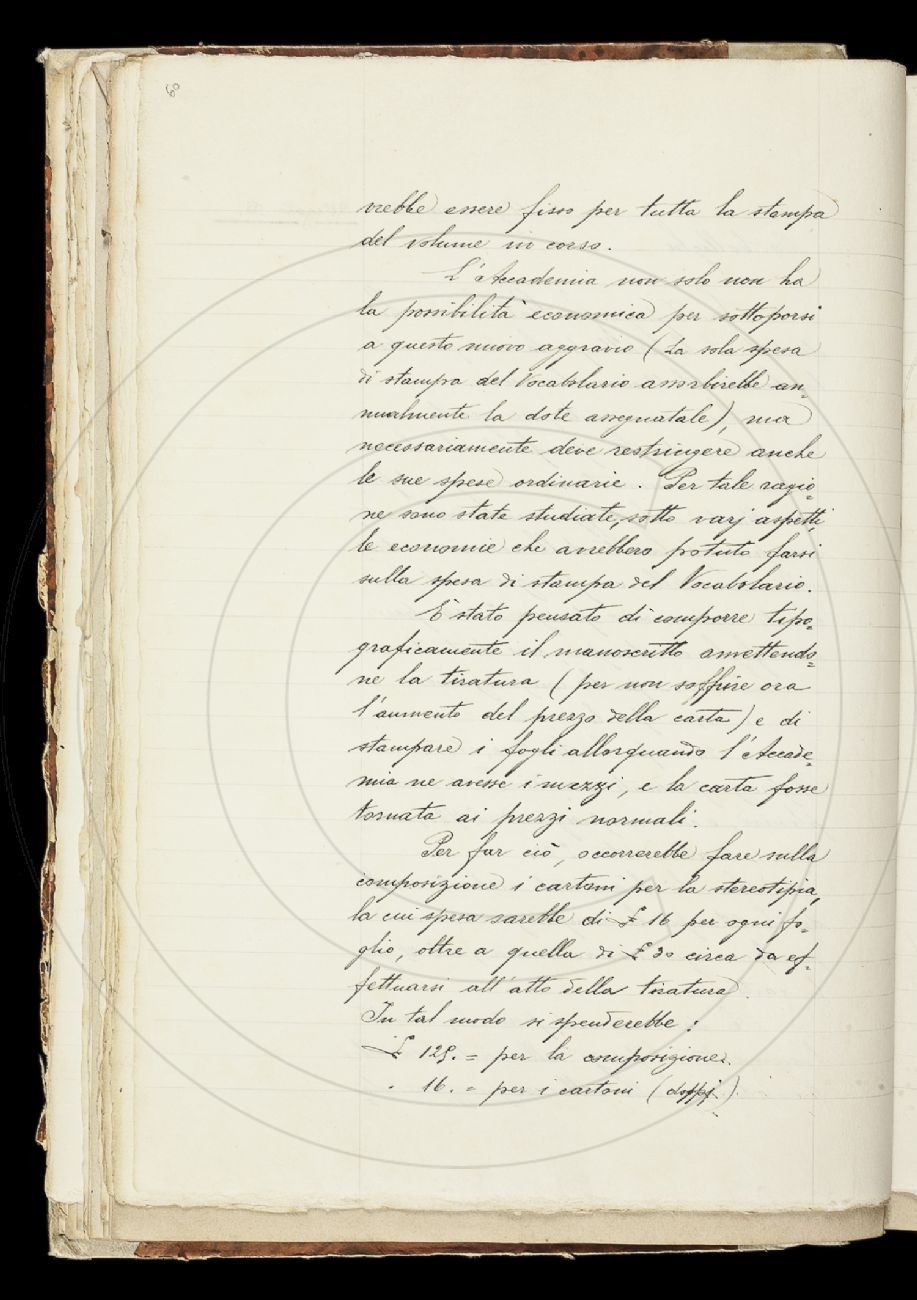 60
vrebbe essere fisso per tutta la stampa
del volume in corso.
L'Accademia non solo non ha
la possibilità economica per sottoporsi
a questo nuovo aggravio (la sola spesa
di stampa del Vocabolario assorbirebbe an=
nualmente la dote assegnatale), ma
necessariamente deve restringere anche
le sue spese ordinarie. Per tale ragio=
ne sono state studiate, sotto varj aspetti,
le economie che avrebbero potuto farsi
sulla spesa di stampa del Vocabolario.
È stato pensato di comporre tipo=
graficamente il manoscritto omettendo=
ne la tiratura (per non soffrire ora
l'aumento del prezzo della carta) e di
stampare i fogli allorquando l'Accade=
mia ne avesse i mezzi, e la carta fosse
tornata ai prezzi normali.
Per far ciò, occorrerebbe fare sulla
composizione i cartoni per la stereotipia,
la cui spesa sarebbe di £ 16 per ogni fo=
glio, oltre a quella di £ 30 circa da ef=
fettuarsi all'atto della tiratura.
In tal modo si spenderebbe:
£ 129. = per la composizione.
" 16. = per i cartoni (doppj).